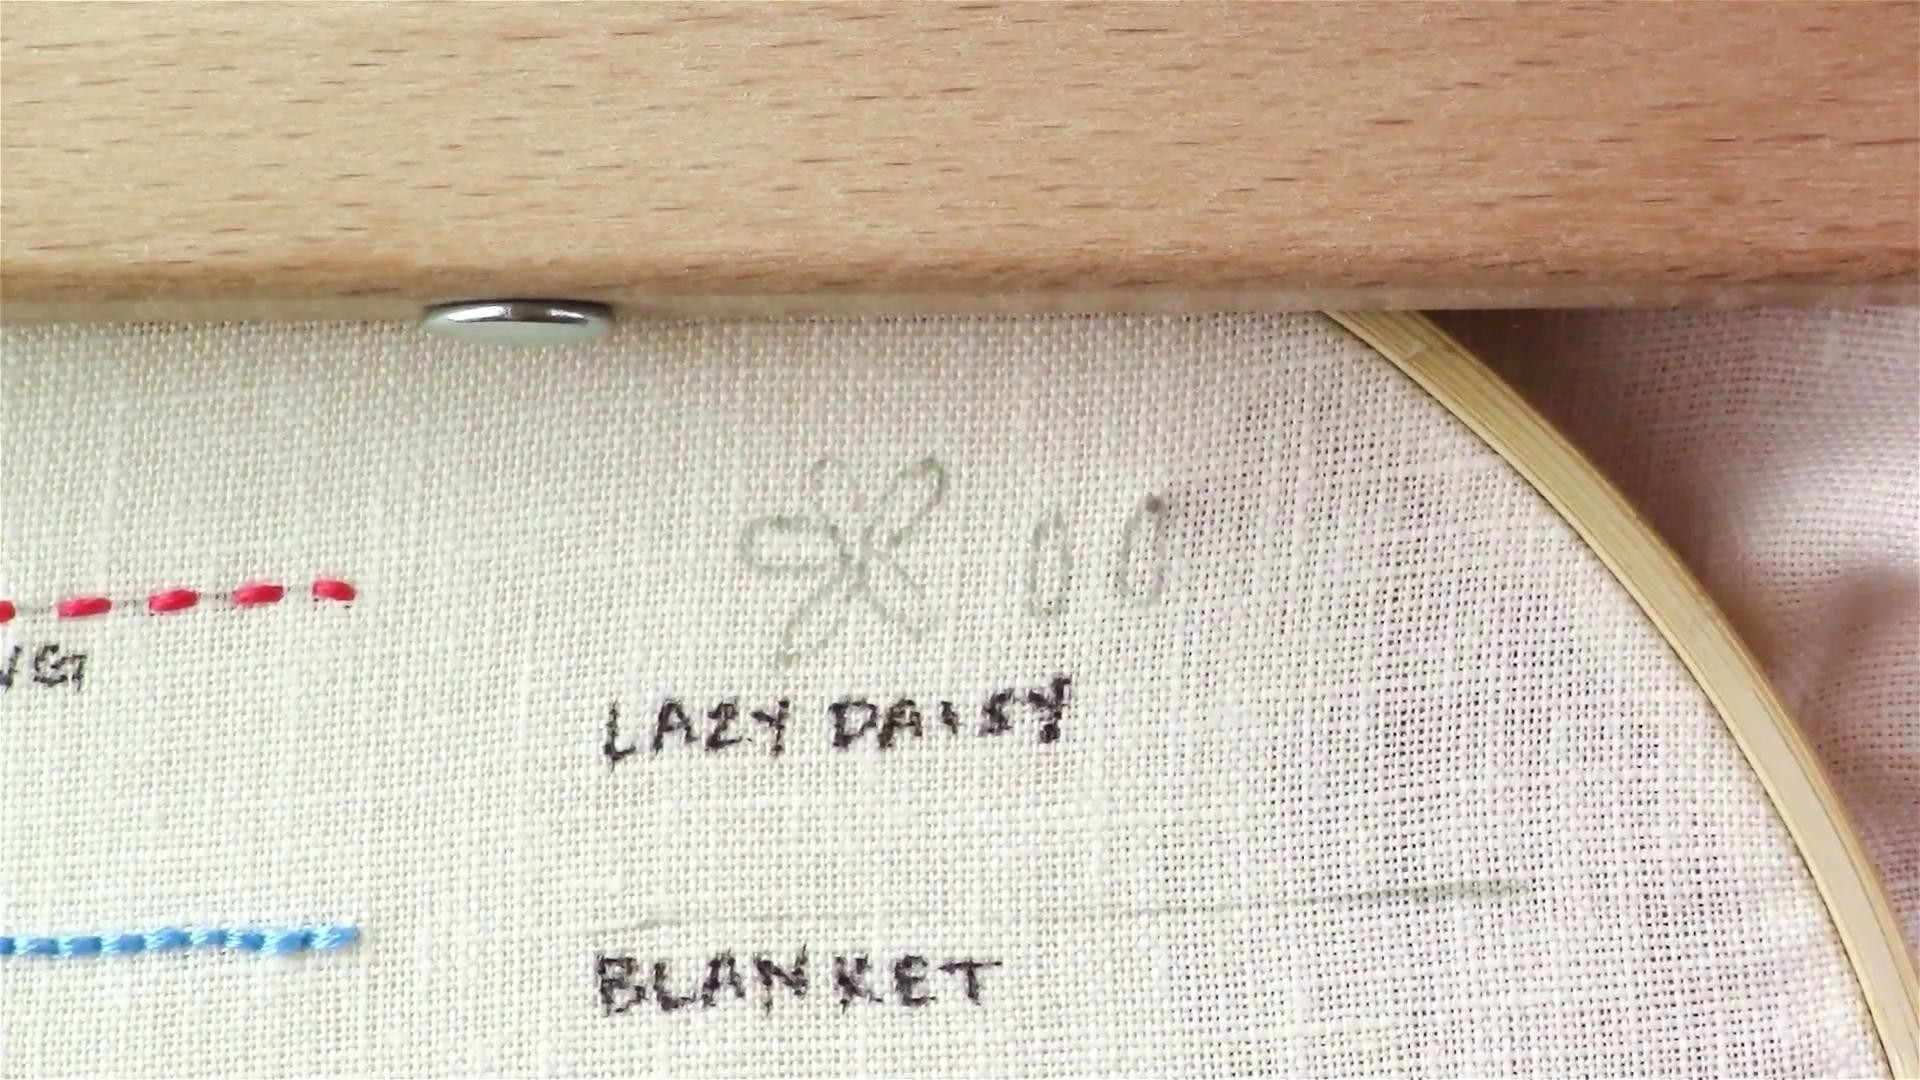 LAZY DAISY
BLANKET